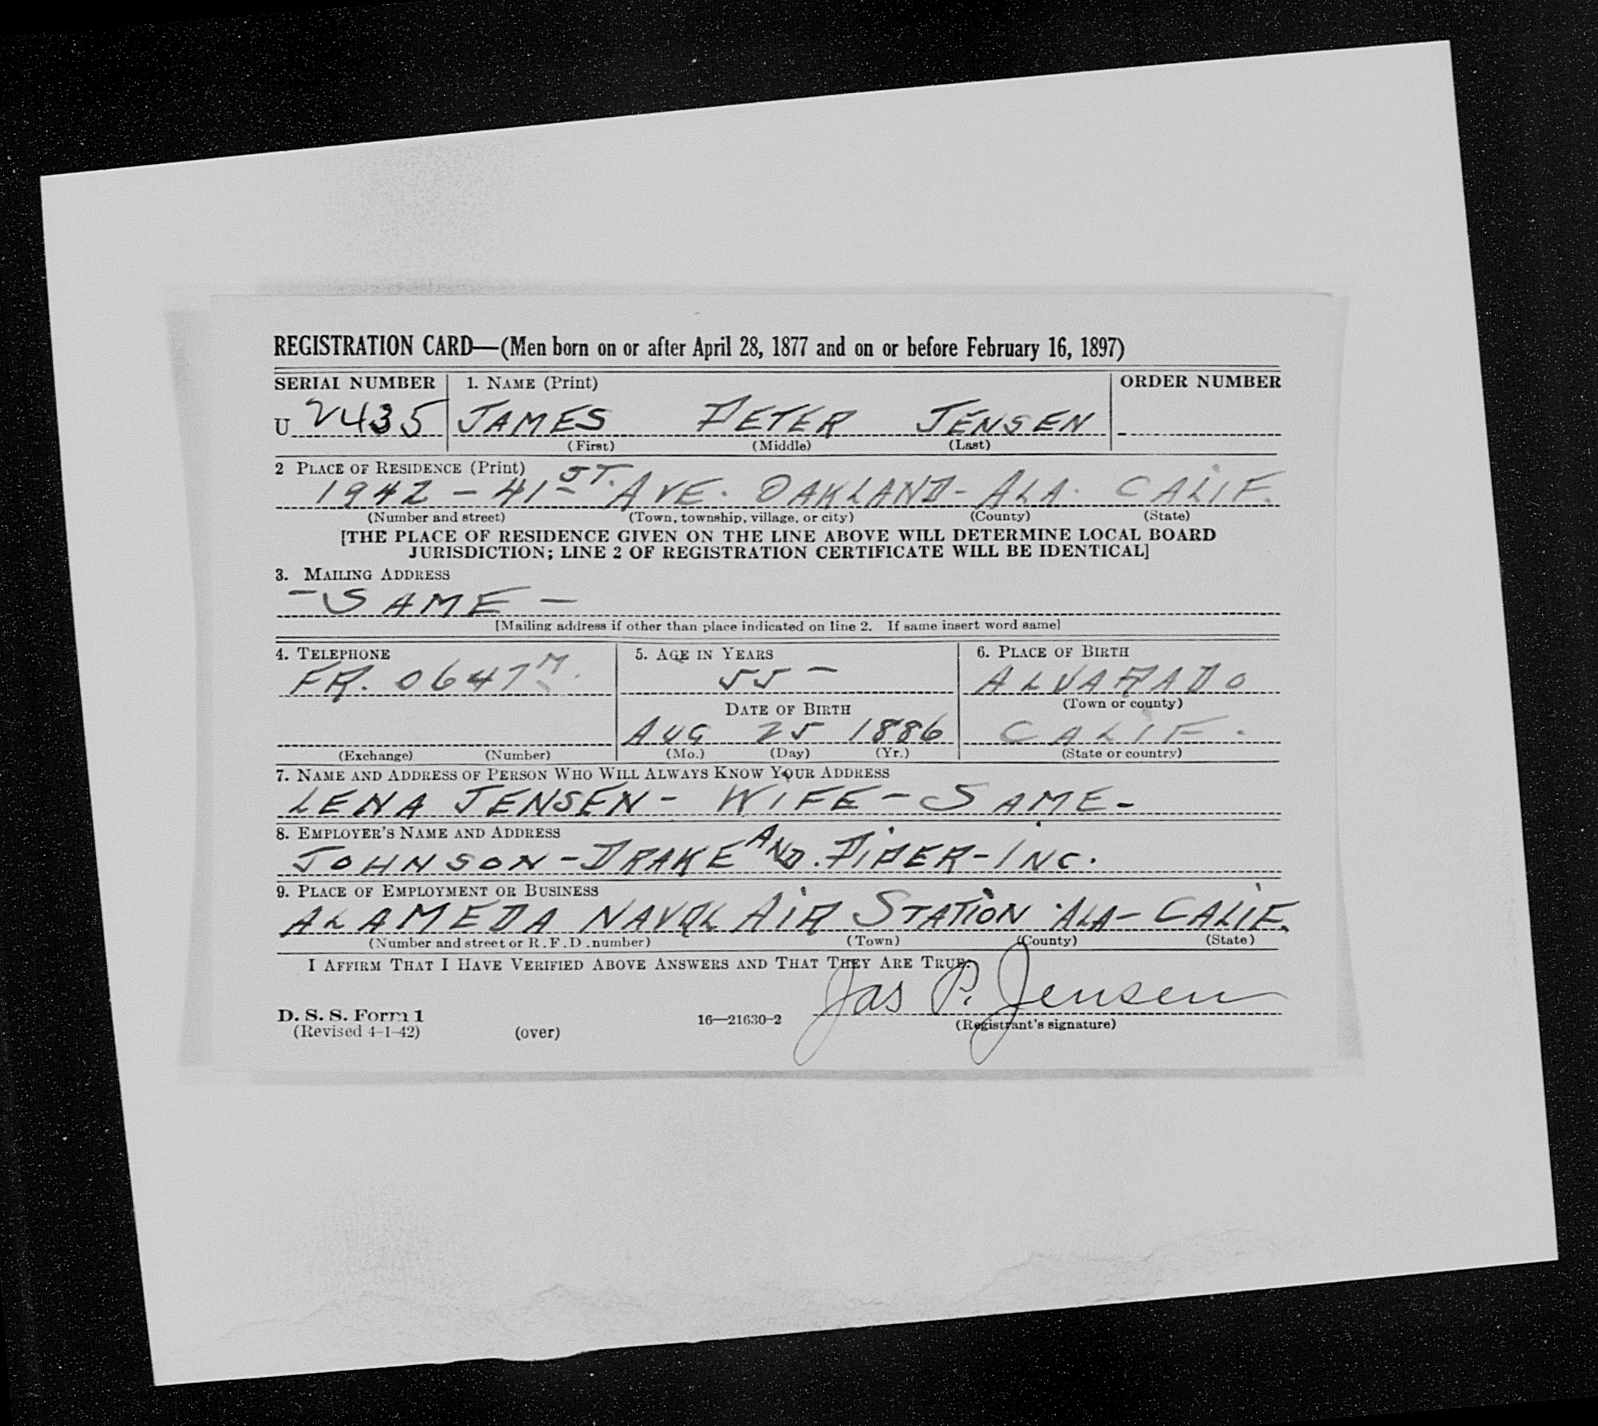 REGISTRATION CARD—(Men born on or after April 28, 1877 and on or before February 16, 1897)
SERIAL NUMBER 1. NAME (Print) ORDER NUMBER
U 2435 JAMES PETER JENSEN
(First) (Middle) (Last)
2 PLACE OF RESIDENCE (Print)
1942 - 41ST. AVE. OAKLAND - ALA. CALIF.
(Number and street) (Town, township, village, or city) (County) (State)
[THE PLACE OF RESIDENCE GIVEN ON THE LINE ABOVE WILL DETERMINE LOCAL BOARD
JURISDICTION; LINE 2 OF REGISTRATION CERTIFICATE WILL BE IDENTICAL]
3. MAILING ADDRESS
- SAME -
[Mailing address if other than place indicated on line 2. If same insert word same]
4. TELEPHONE 5. AGE IN YEARS 6. PLACE OF BIRTH
FR. 0647 55 - ALVARADO
DATE OF BIRTH (Town or county)
AUG 25 1886 CALIF.
(Exchange) (Number) (Mo.) (Day) (Yr.) (State or country)
7. NAME AND ADDRESS OF PERSON WHO WILL ALWAYS KNOW YOUR ADDRESS
LENA JENSEN - WIFE - SAME -
8. EMPLOYER'S NAME AND ADDRESS
JOHNSON - DRAKE AND. PIPER - INC.
9. PLACE OF EMPLOYMENT OR BUSINESS
ALAMEDA NAVAL AIR STATION ALA - CALIF.
(Number and street or R. F. D. number) (Town) (County) (State)
I AFFIRM THAT I HAVE VERIFIED ABOVE ANSWERS AND THAT THEY ARE TRUE.
Jas P. Jensen
D. S. S. Form 1 16—21630-2 (Registrant's signature)
(Revised 4-1-42) (over)